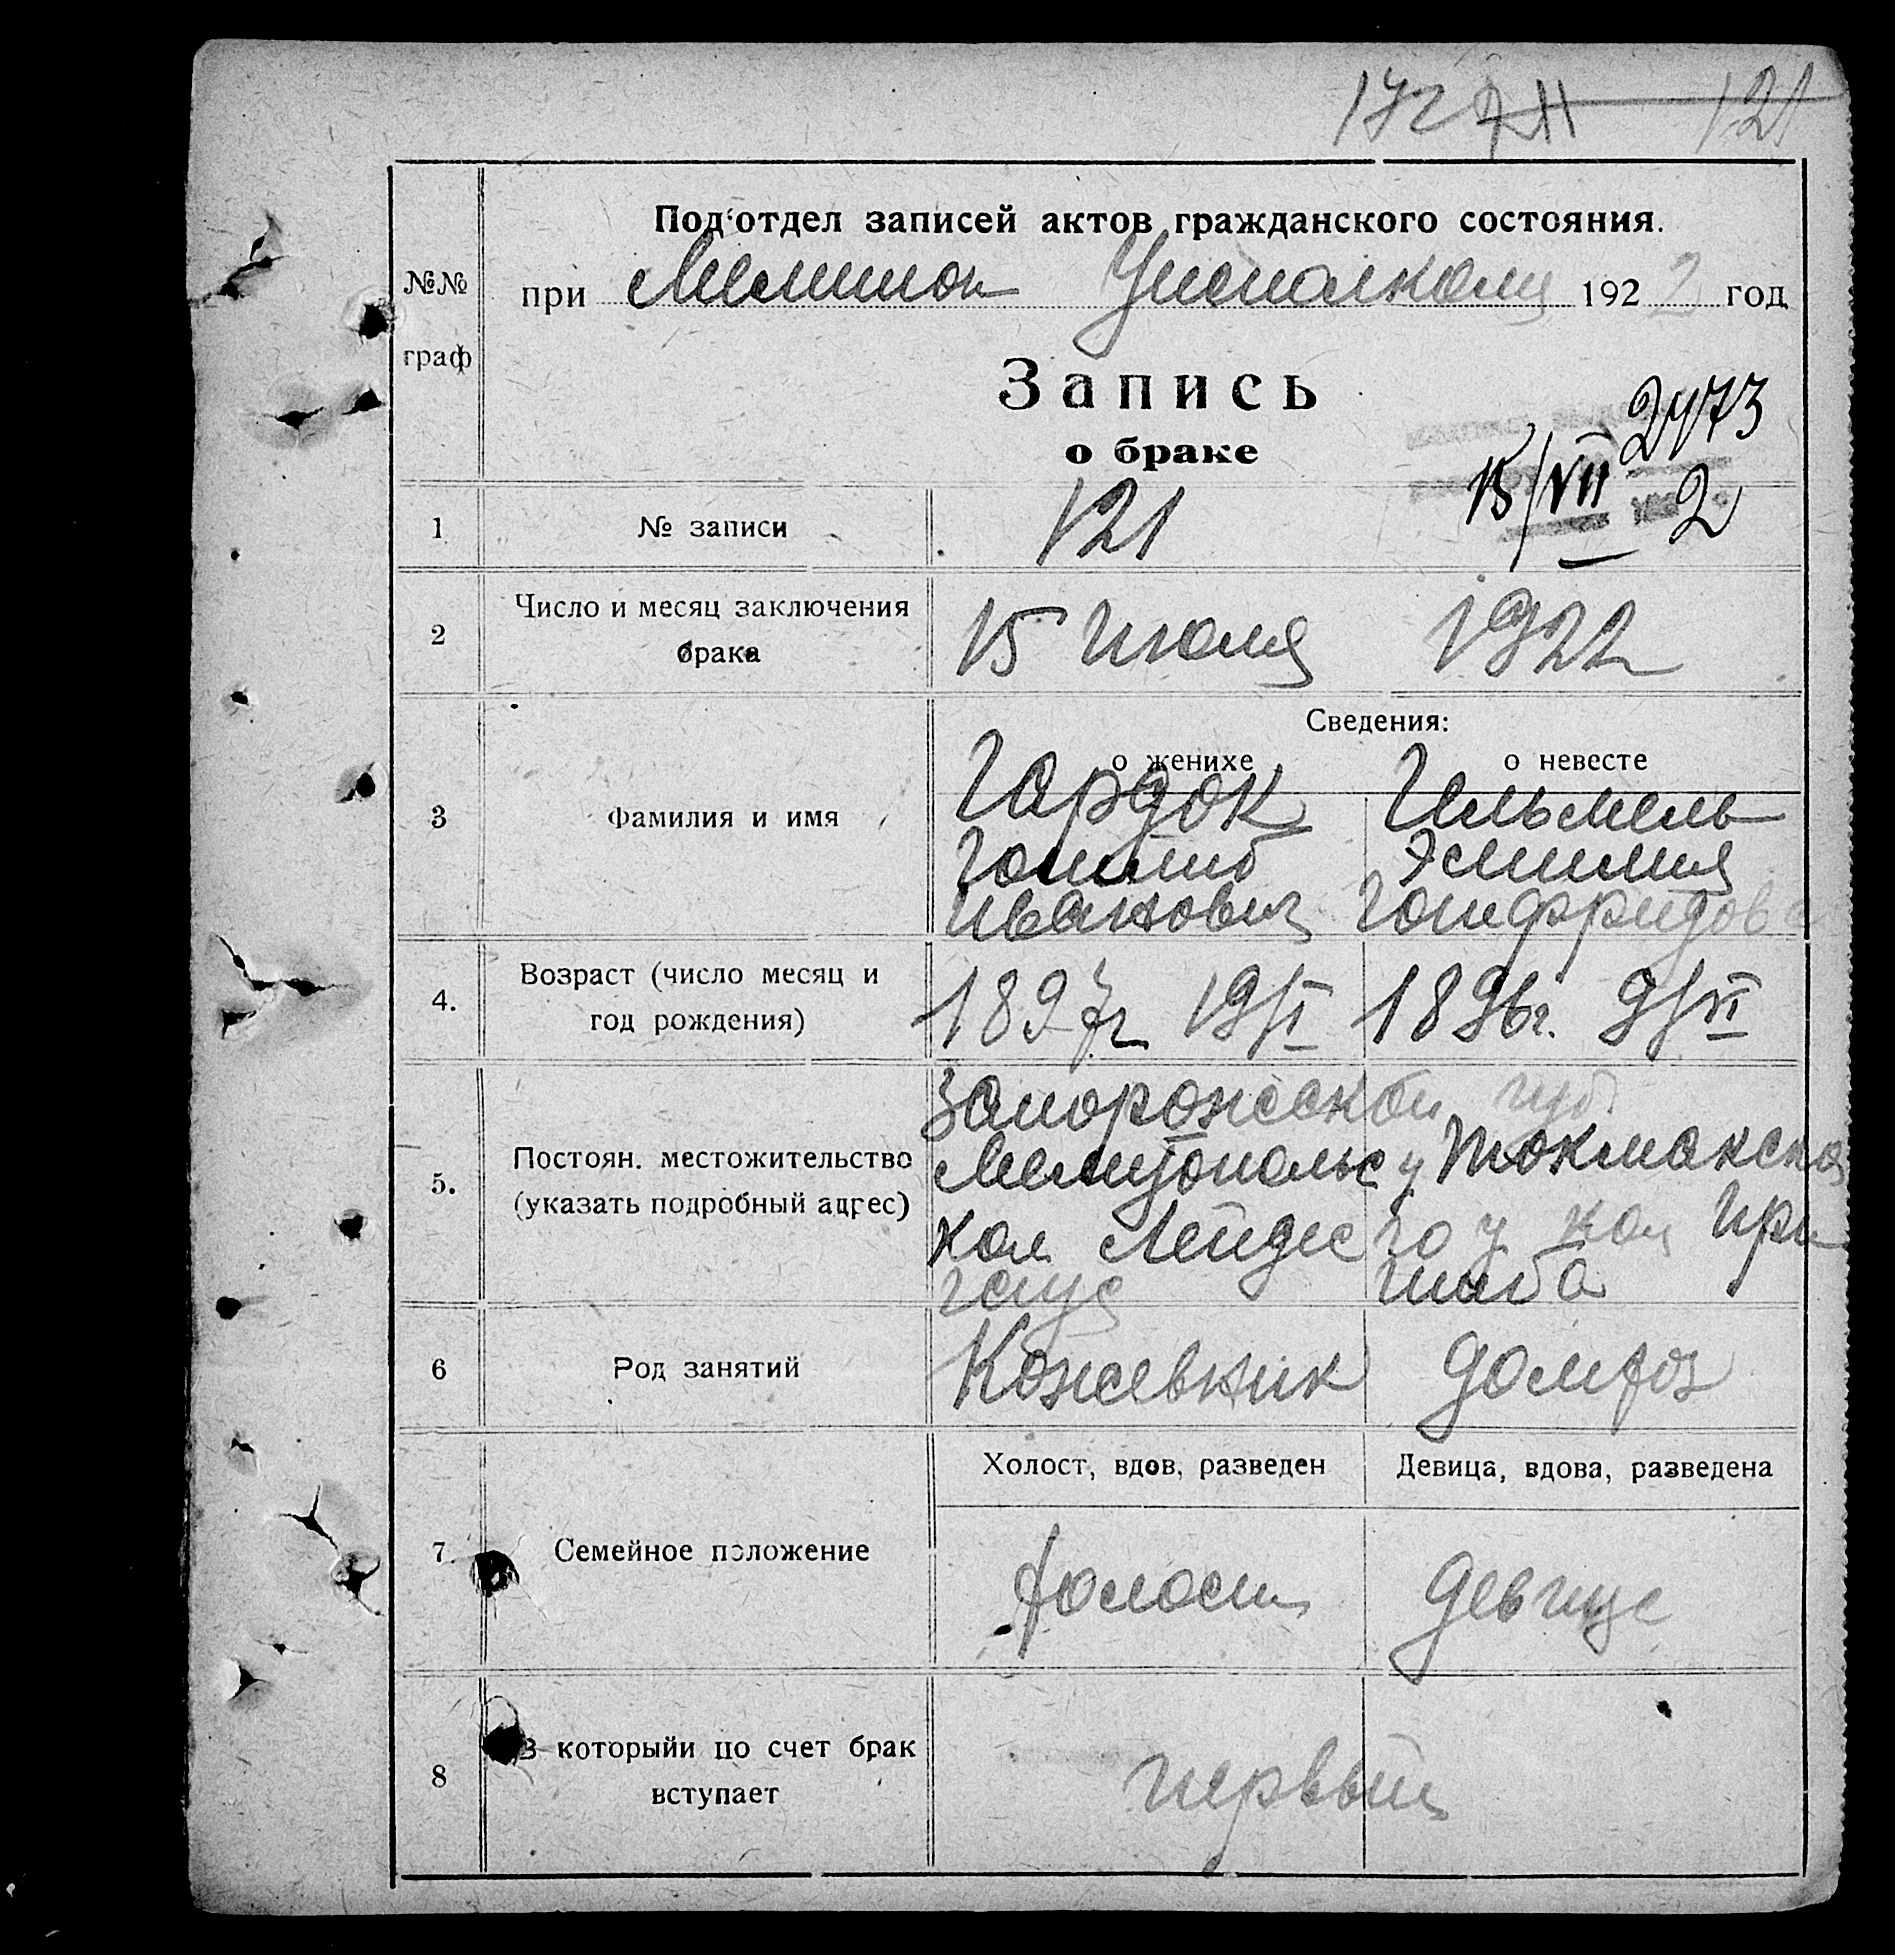 121
Под'отдел записей актов гражданского состояния.
№№ граф
при Мелитоп Уисполкому 1922 год
Запись
о браке
2473
15/VII 2
1 № записи 121
2 Число и месяц заключения брака 15 Июля 1922
Сведения:
о женихе о невесте
3 Фамилия и имя
Гардок Гельмель
Готлиб Эмилия
Иванович Готфридова
4. Возраст (число месяц и год рождения)
1897г 19/II 1896г. 9/XI
5. Постоян. местожительство (указать подробный адрес)
Запорожской губ.
Мелитопольс у Токмакско
кол Лейде го у кол При
гауз шиба
6 Род занятий Кожевник домхоз
Холост, вдов, разведен Девица, вдова, разведена
7 Семейное положение холост девице
8 В которыйи по счет брак вступает первый